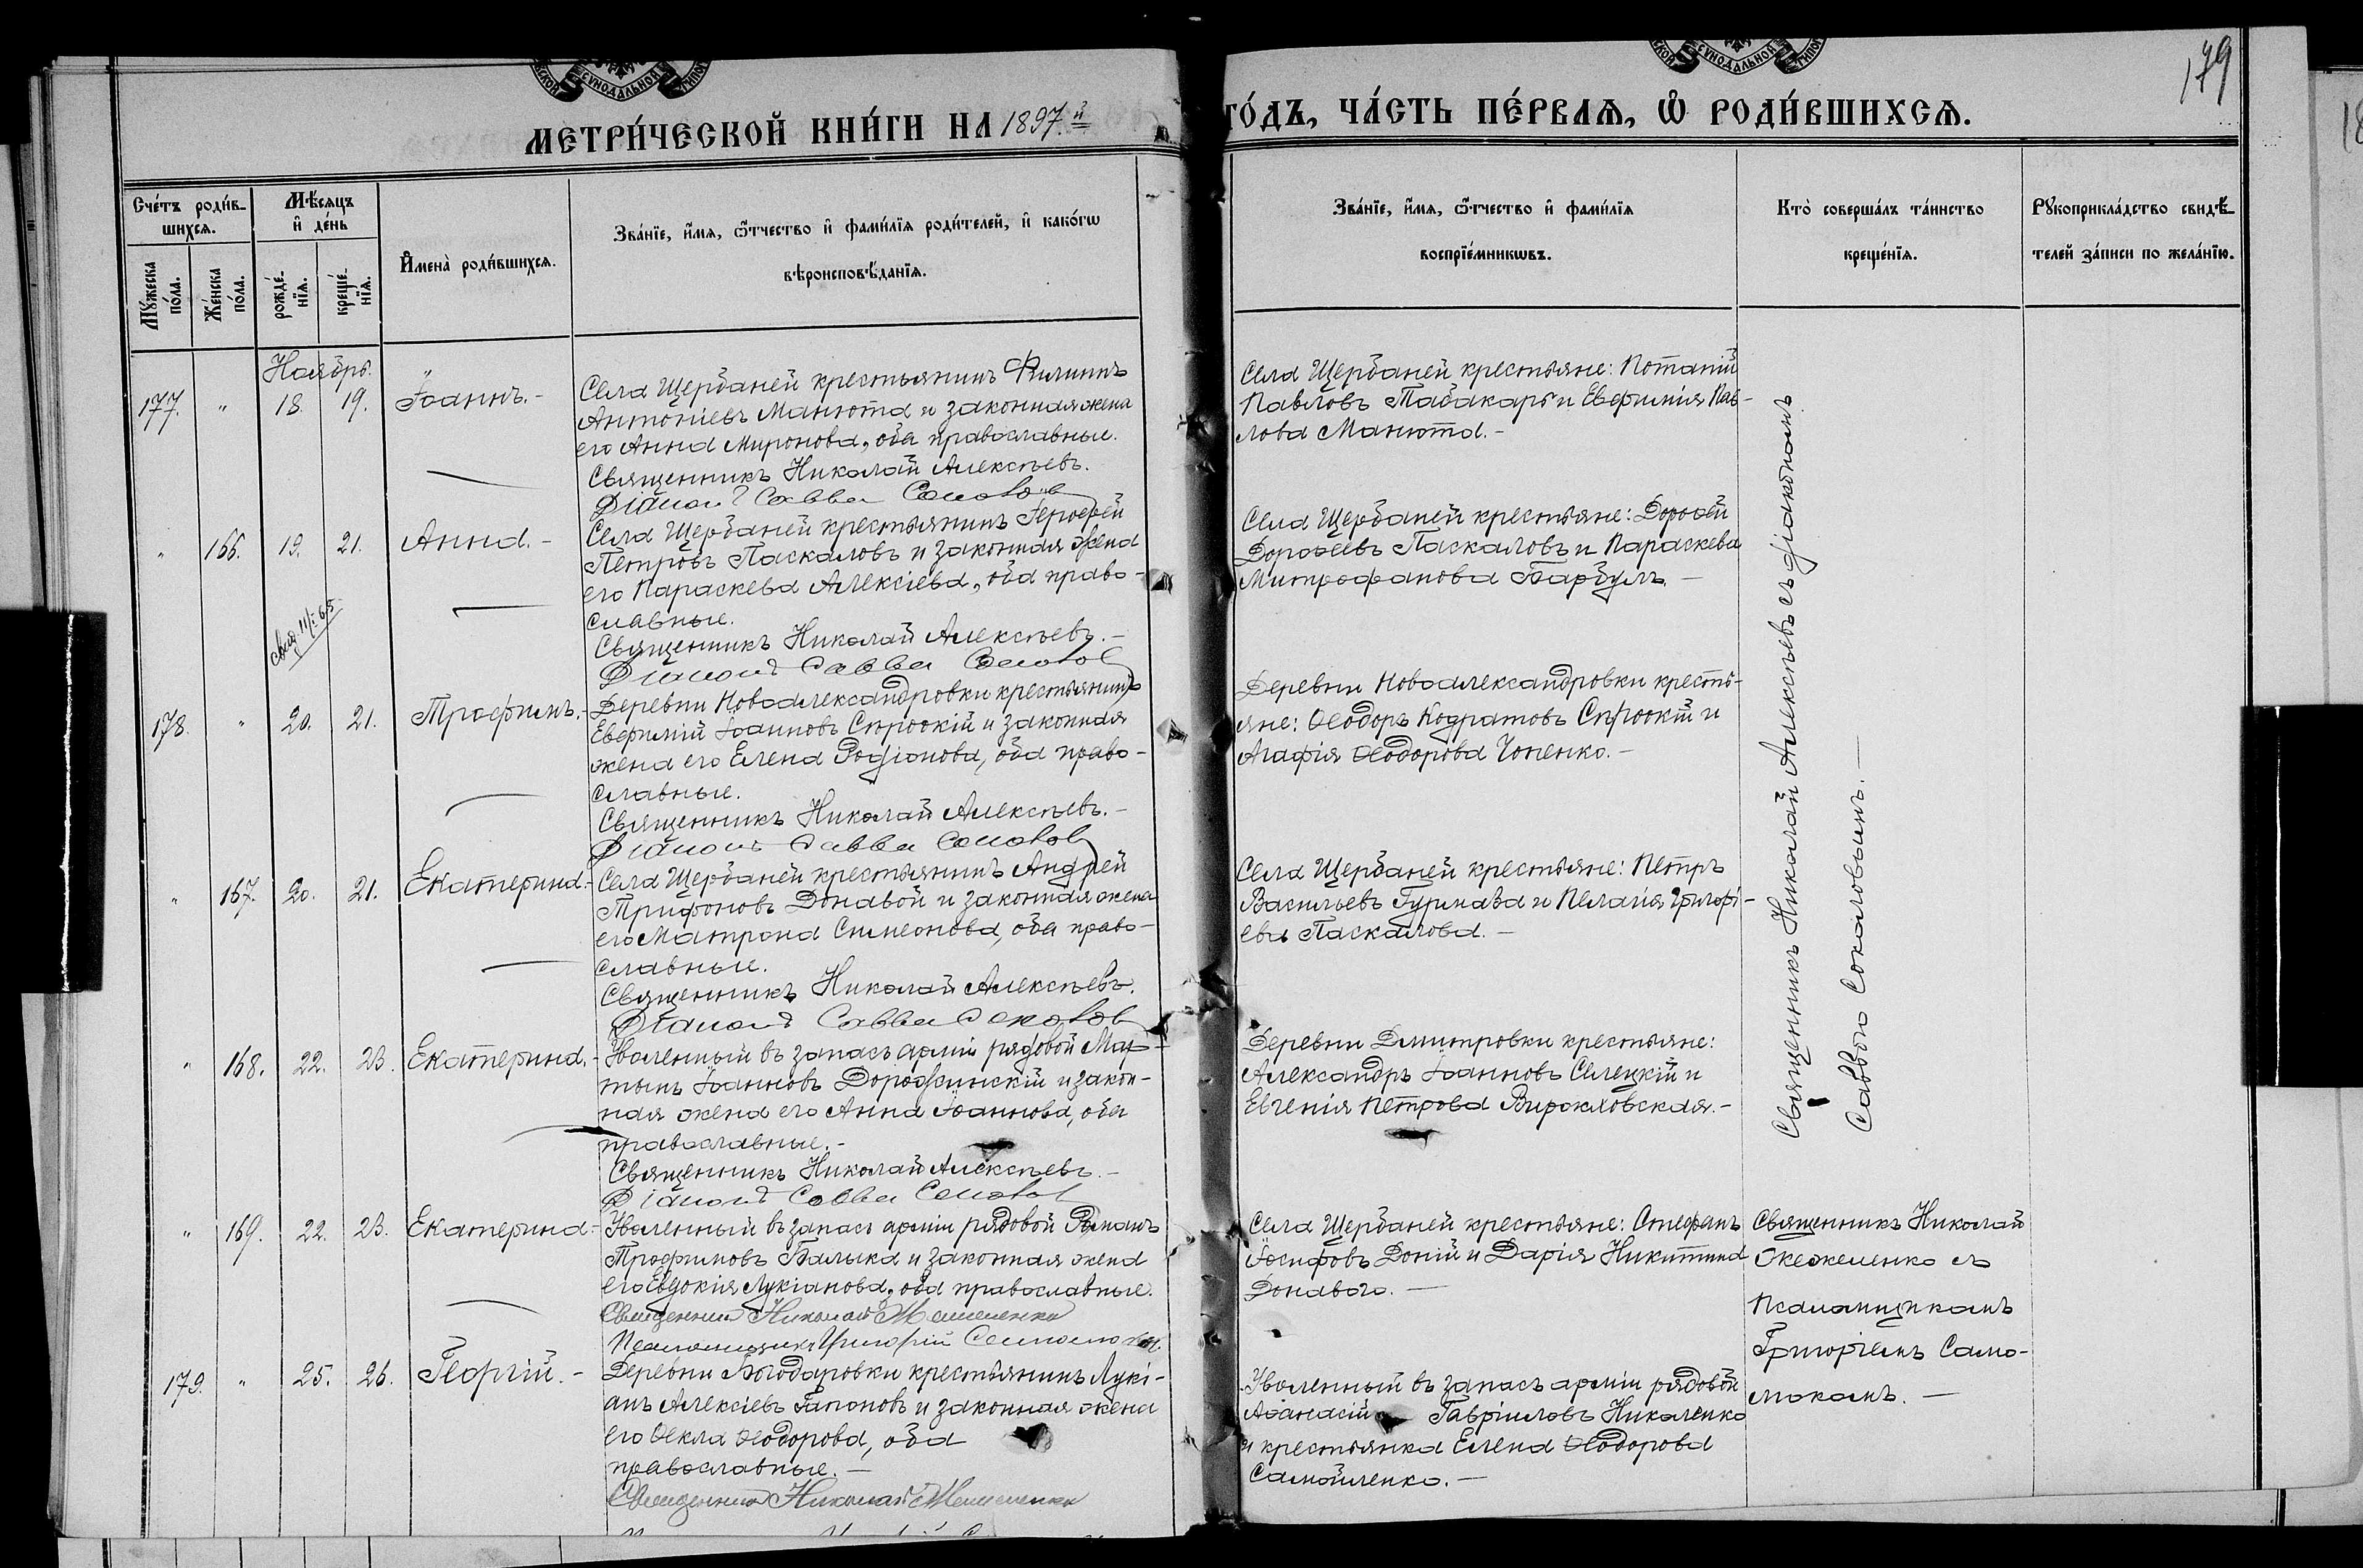 179
МЕТРИ́ЧЕСКОЙ КНИ́ГИ НА 1897.й
ГО́ДЪ, ЧА́СТЬ ПЕ́РВАѦ, Ѡ҆ РОДИ́ВШИХСѦ.
Сче́тъ роди́в-
шихсѧ.
Мѣ́сѧцъ
и҆ де́нь
И҆мена̀ роди́вшихсѧ.
Зва́нїе, и҆́мѧ, ѻ҆́тчество и҆ фами́лїѧ роди́телей, и҆ како́гѡ
вѣроисповѣ́данїѧ.
Му́жеска
по́ла.
Же́нска
по́ла.
рожде́-
нїѧ.
креще́-
нїѧ.
Зва́нїе, и҆́мѧ, ѻ҆́тчество и҆ фами́лїѧ
воспрїе́мникѡвъ.
Кто̀ соверша́лъ та́инство
креще́нїѧ.
Рꙋкоприкла́дство свидѣ́-
телей за́писи по жела́нїю.
Ноябрь.
177. " 18. 19. Іоаннъ.-
Села Щербаней крестьянинъ Филиппъ
Антоніевъ Манюта и законная жена
его Анна Миронова, оба православные.
Священникъ Николай Алексѣевъ.
Діаконъ Савва Соколов
Села Щербаней крестьяне: Потапій
Павловъ Табакаръ и Евфимія Пав-
лова Манюта.-
" 166. 19. 21. Анна.-
Села Щербаней крестьянинъ Іерофей
Петровъ Паскаловъ и законная жена
его Параскева Алексіева, оба право-
славные.
Священникъ Николай Алексѣевъ.-
Діаконъ Савва Соколов
Села Щербаней крестьяне: Дорофей
Дорофеевъ Паскаловъ и Параскева
Митрофанова Барбулъ.-
178. " 20. 21. Трофимъ.-
Деревни Новоалександровки крестьянинъ
Евфимій Іоанновъ Сироокій и законная
жена его Елена Родіонова, оба право-
славные.
Священникъ Николай Алексѣевъ.-
Діаконъ Савва Соколов
Деревни Новоалександровки кресть-
яне: Ѳеодоръ Кодратовъ Сироокій и
Агафія Ѳеодорова Чопенко.-
" 167. 20. 21. Екатерина.-
Села Щербаней крестьянинъ Андрей
Трифоновъ Донавой и законная жена
его Матрона Симеонова, оба право-
славные.
Священникъ Николай Алексѣевъ.
Діаконъ Савва Соколов
Села Щербаней крестьяне: Петръ
Васильевъ Гурмаза и Пелагія Григорі-
ева Паскалова.-
" 168. 22. 23. Екатерина.-
Уволенный въ запасъ арміи рядовой Мар-
тынъ Іоанновъ Дорофинскій и закон-
ная жена его Анна Іоаннова, оба
православные.-
Священникъ Николай Алексѣевъ.-
Діаконъ Савва Соколов
Деревни Дмитровки крестьяне:
Александръ Іоанновъ Селецкій и
Евгенія Петрова Вирскловская.-
Священникъ Николай Алексѣевъ съ діакономъ
Саввою Соколовымъ.-
" 169. 22. 23. Екатерина.-
Уволенный въ запасъ арміи рядовой Романъ
Трофимовъ Балыка и законная жена
его Евдокія Лукіанова, оба православные.
Священникъ Николай Жежеленко
Псаломщикъ Григорій Соломоко
Села Щербаней крестьяне: Стефанъ
Іосифовъ Доній и Дарія Никитина
Донавого.-
Священникъ Николай
Жежеленко съ
Псаломщикомъ
Григоріемъ Само-
локомъ.-
179. " 25. 26. Георгій.-
Деревни Богодаровки крестьянинъ Лукі-
анъ Алексіевъ Гапоновъ и законная жена
его Ѳекла Ѳеодорова, оба
православные.-
Священникъ Николай Жежеленко
Уволенный въ запасъ арміи рядовой
Аѳанасій Гавріиловъ Николенко
и крестьянка Елена Ѳеодорова
Самойленко.-